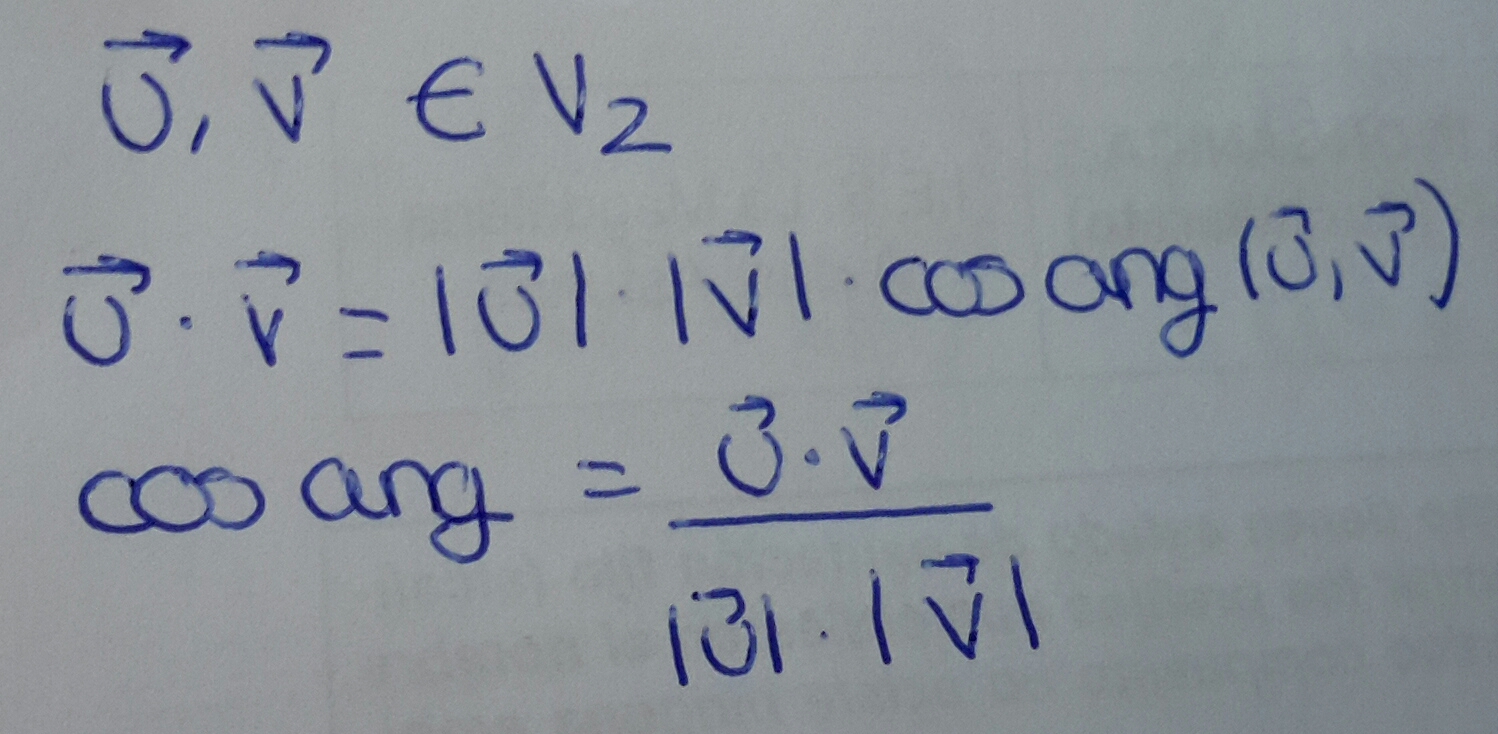 u⃗, v⃗ ∈ V₂
u⃗ · v⃗ = |u⃗| · |v⃗| · cos ang (u⃗, v⃗)
cos ang = u⃗ · v⃗ / |u⃗| · |v⃗|